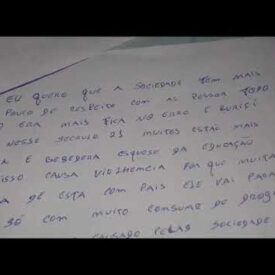 EU QUERO QUE A SOCIEDADE TEM MAIS
POUCO DE RESPEITO COM AS PESSOA TODO
ERA MAIS FICA NO ERRO E
NOSSE SECULO 21 MUITOS ESTÃO MAIS
N E BEBEDERA ESQUESE DA EDUCAÇÃO
ISSO CAUSA VIOLHEMCIA POR QUE MUITA
DE ESTA COM PAIS ELE VAI PARA
SÓ COM MUITO CONSUMO DE DROGA
CAUSADO PELAS SOCIEDADE